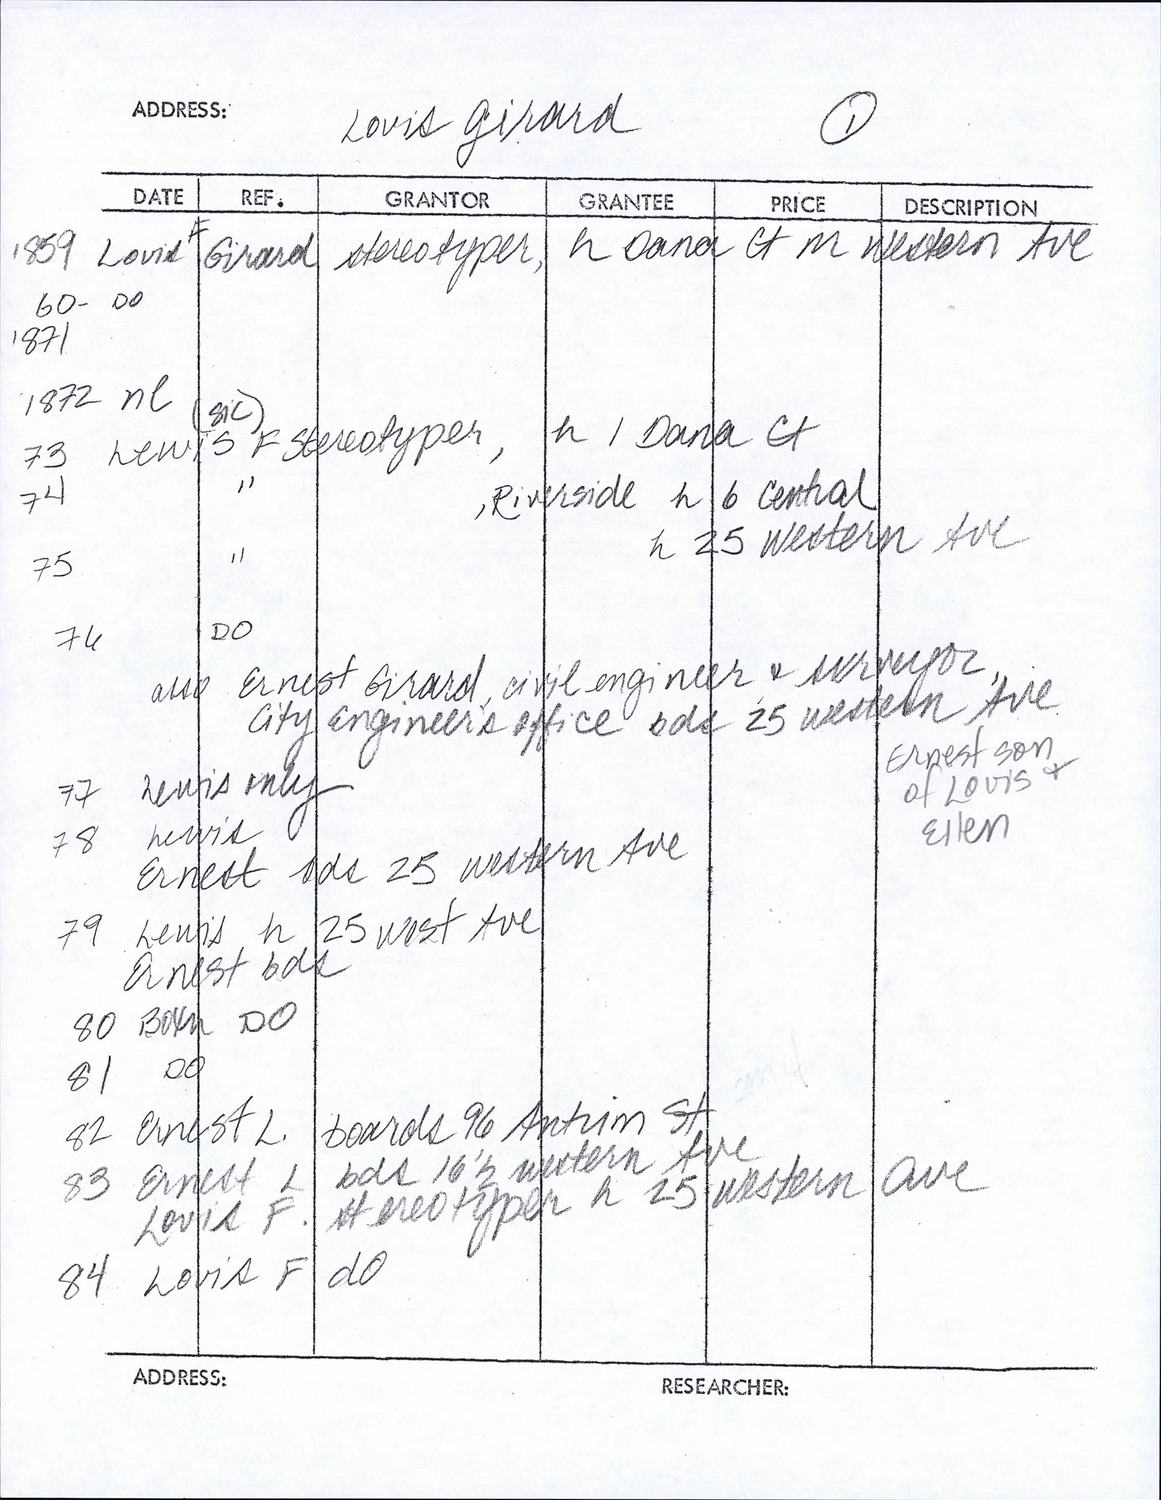 ADDRESS: Louis Girard 1
DATE REF. GRANTOR GRANTEE PRICE DESCRIPTION
1859 Louis F Girard stereotyper, h Dana Ct n Western Ave
60- DO
1871
1872 nl
(sic)
73 Lewis F Stereotyper, h 1 Dana Ct
74 " , Riverside h 6 Central
h 25 Western Ave
75 "
76 DO
also Ernest Girard, civil engineer & surveyor,
City Engineer's office bds 25 Western Ave
Ernest son
of Louis &
Ellen
77 Lewis only
78 Lewis
Ernest bds 25 Western Ave
79 Lewis h 25 West Ave
Ernest bds
80 Both DO
81 DO
82 Ernest L. boards 96 Antrim St
83 Ernest L bds 16½ Western Ave
Louis F. stereotyper h 25 Western Ave
84 Louis F do
ADDRESS: RESEARCHER: